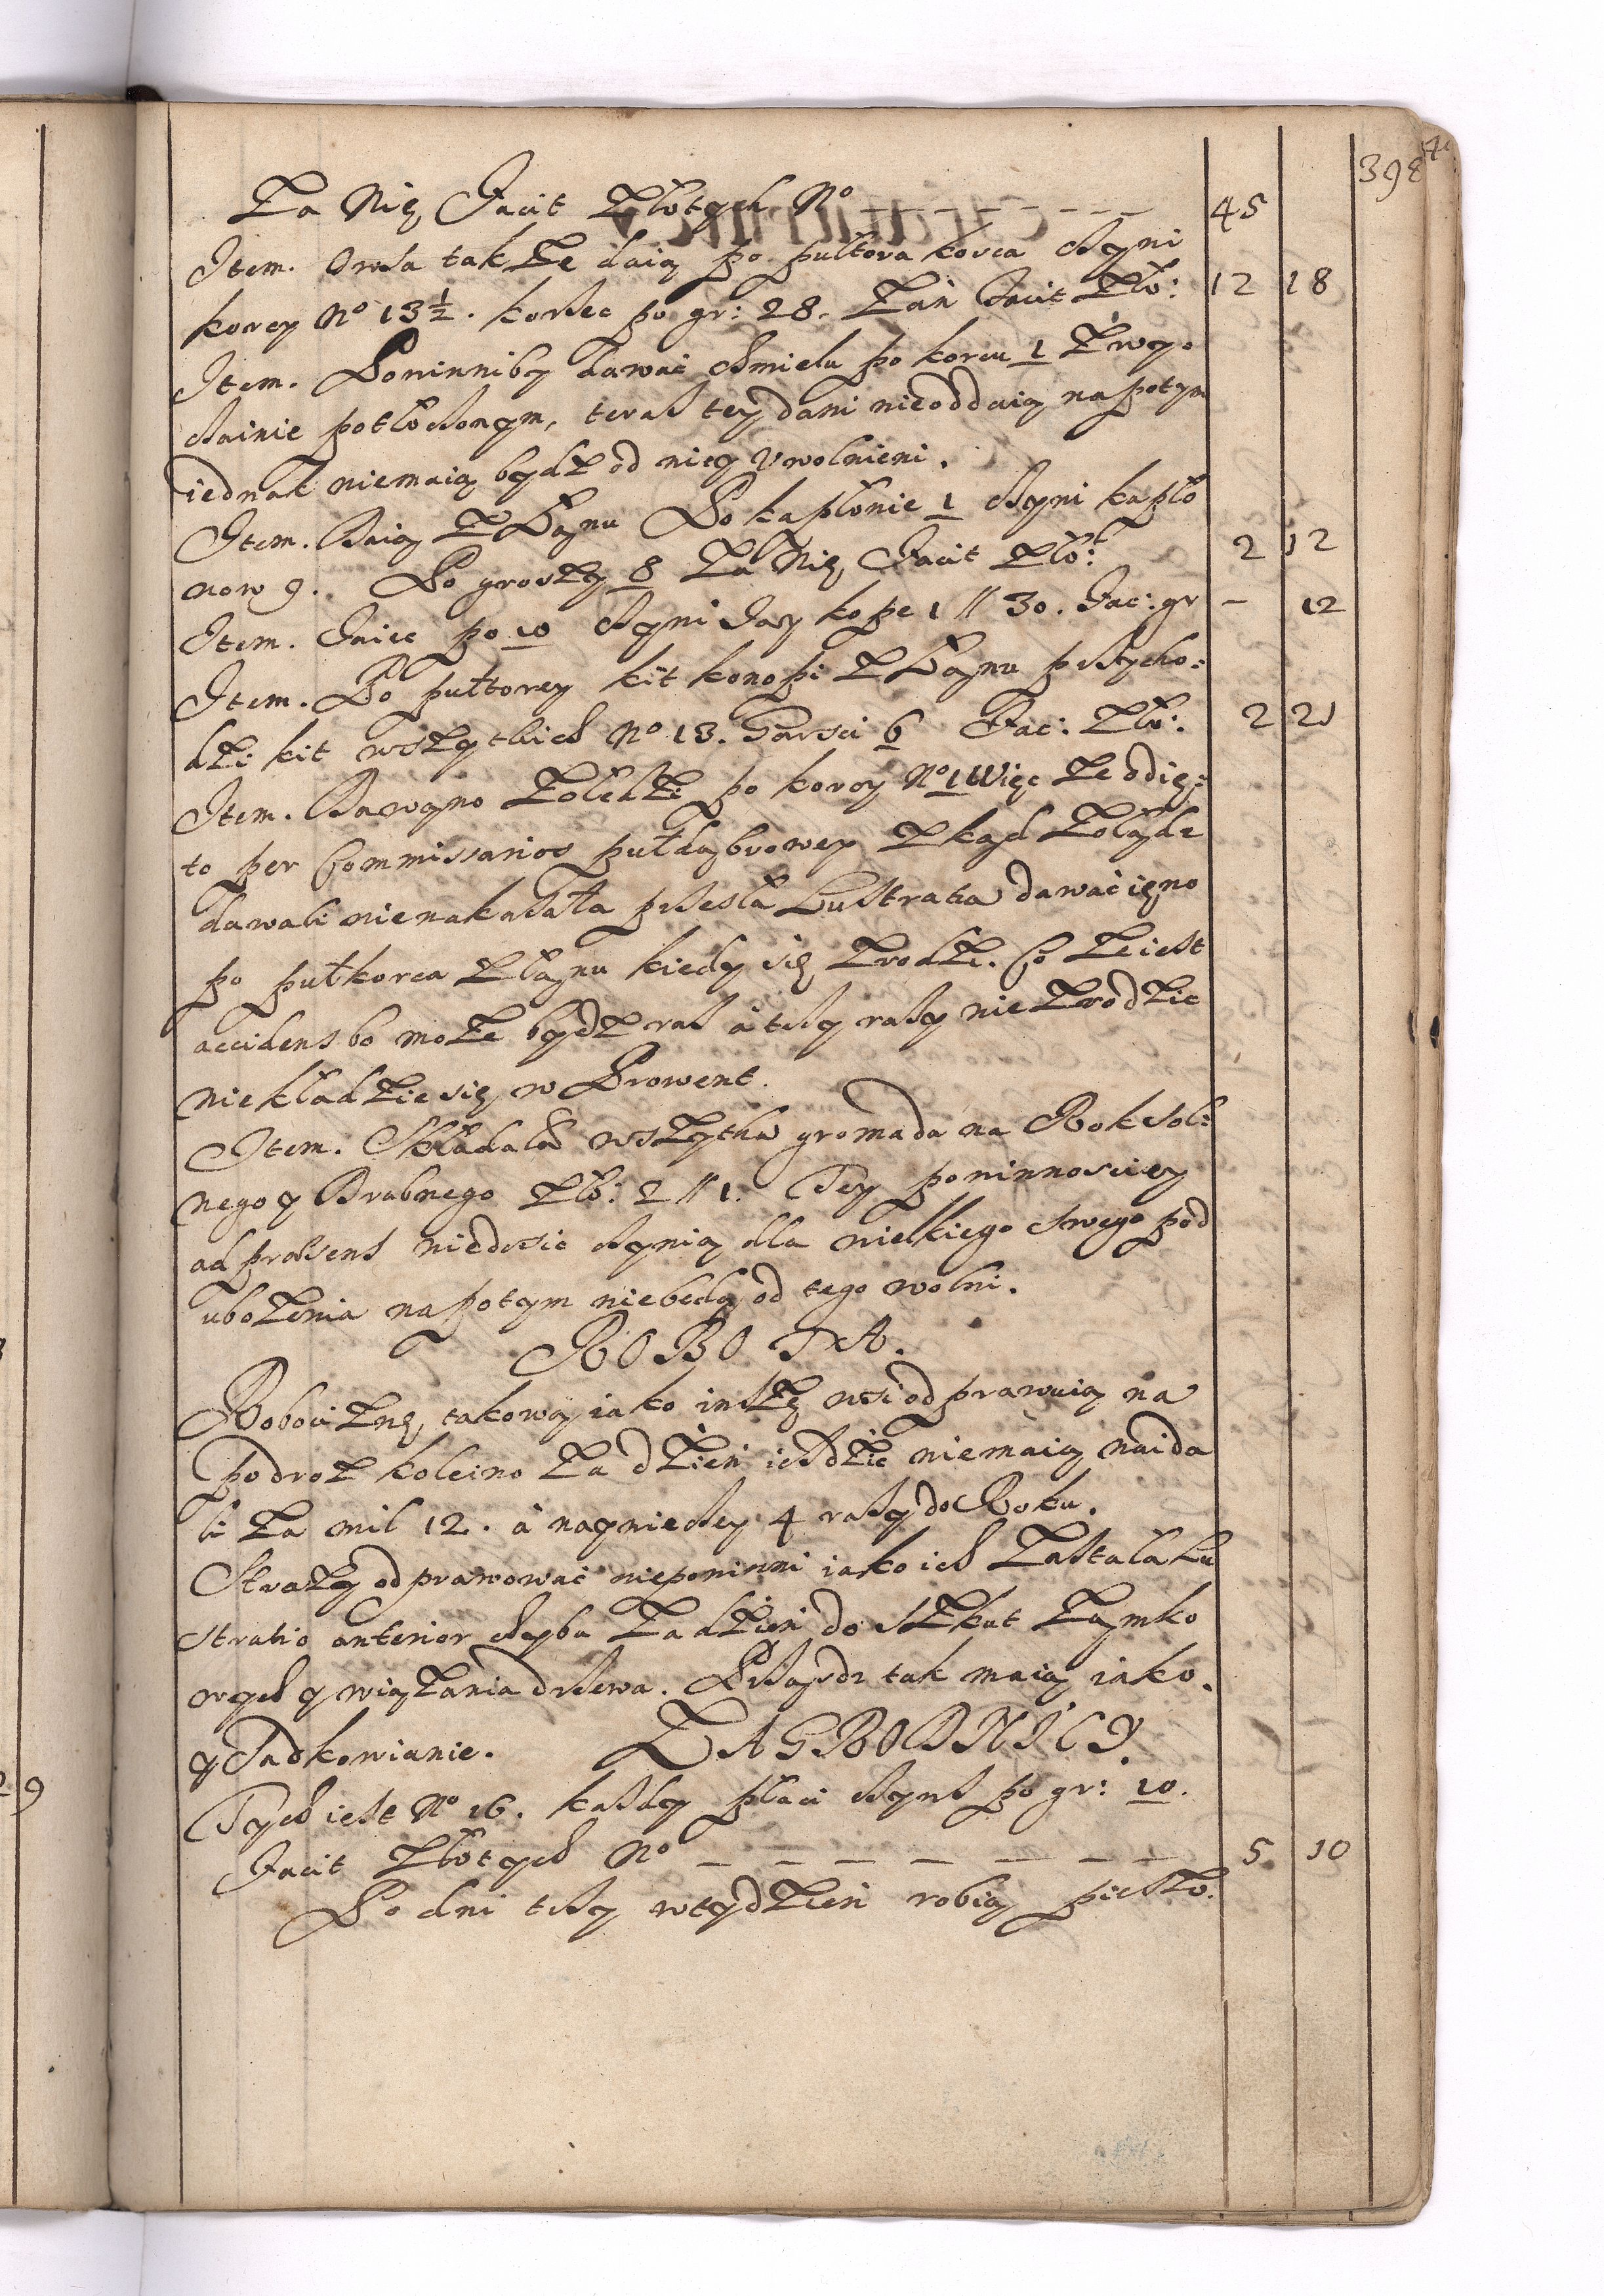 398
Za Nię Facit Złotych No — — — — — 45
Item. Owsa takze daią po pułtora korca czyni
korcy No 13½. korzec po gr: 28. Zań Facit Zło: 12 18
Item. Powinniby dawać chmielu po korcu 1 Zwy-
czainie potłoczonym, teraz tey dani nieoddaią napotym
iednak niemaią bydz od niey Uwolnieni.
Item. Daią Z Łanu Po kapłonie 1 czyni kapło
now 9. Po groszy 8 Za Nię Facit Zło: 2 12
Item. Jaiec po 10 czyni Jay kope 1 // 30. Fac: gr — 12
Item. Po pułtorey kit konopi Z Łanu przycho:
dzi kit wszytkich No 13. Garsci 6 Fac: Zło: 2 21
Item. Dawano Zołedzi po korcy No 1 Więc ze odię:
to per Commissarios pułdąbrowey Zkąd Zołądz
dawali nienakazała przeszła Lustratia dawać ieno
po pułkorca Z łanu kiedy się Zrodzi. Co Ze iest
accidens bo moze bydz raz à trzy razy nie Zrodzic
niekładzie się w Prowent.
Item. Składała wszytka gromada na Rok Sol:
nego y Drabnego Zło: 2 // 1. Tey powinnosci y
ad præsens niedosic czynią dla wielkiego swego pod
ubozenia napotym niebedą od tego wolni.
ROBOTA.
Robociznę takową iako insze wsi odprawuią na
podroz koleino Za dzień iezdzic niemaią naida
li Za mil 12. à naywiecey 4 razy do Roku.
Strazy odprawować niepowinni iako ich Zastała Lu
stratio anterior chyba Za dzień do szkut Zamko
wych y wiązania drzewa. Przaszdz tak maią iako.
y Jadkowianie. ZAGRODNICY.
Tych iest No 16. kazdy płaci czynsz po gr: 10.
Facit Złotych No — — — — — — — 5 10
Po dni trzy wtydzień robią pieszo.